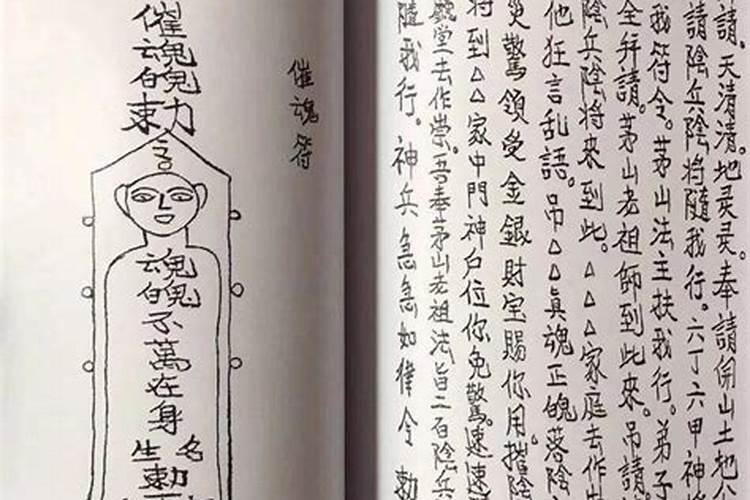 請。天清清。地灵灵。奉請開山土地
請陰兵陰將隨我行。六丁六甲神將
我符令。茅山法主扶我行。弟子
全拜請。茅山老祖師到此來。吊請
陰兵陰将來到此。△△△家庭去作
他狂言乱語。吊△△真魂正魄落陰
災驚領受金銀財宝賜你用。摧陰
将到△△家中門神户位你免驚。速速
堂去作祟。吾奉茅山老祖法旨二百陰兵
隨我行。神兵急急如律令 勅
催魂符
催魂魄勅
魂魄不萬在身
名
生
勅